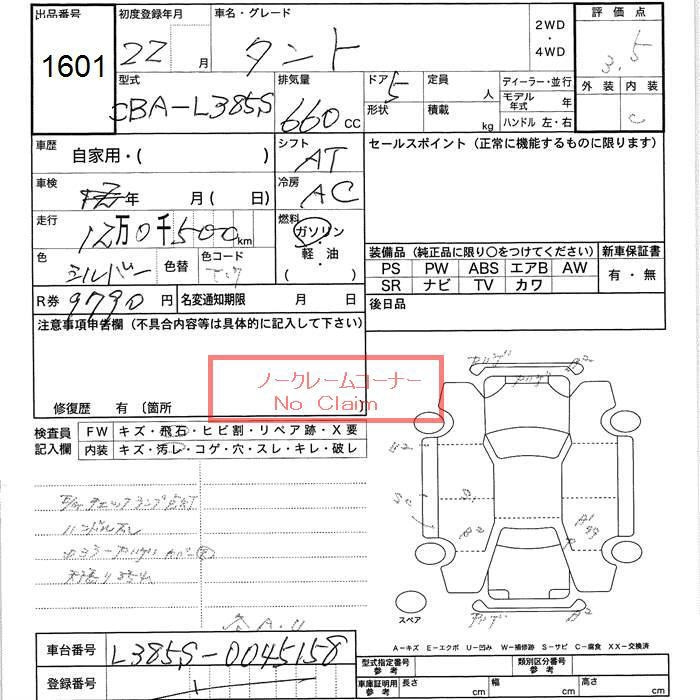 出品番号 初度登録年月 車名・グレード 2WD・4WD 評価点
1601 22 月 タント 3.5
型式 排気量 ドア 5 定員 人 ディーラー・並行 外装 内装
CBA-L385S 660cc 形状 積載 kg モデル年式 年 C
ハンドル 左・右
車歴 自家用・( ) シフト AT セールスポイント (正常に機能するものに限ります)
車検 年 月( 日) 冷房 AC
走行 12万0千500km 燃料 ガソリン・軽油・( )
色 シルバー 色替 色コード 装備品 (純正品に限り○をつけてください) 新車保証書
PS PW ABS エアB AW 有・無
SR ナビ TV カワ
R券 9790円 名変通知期限 月 日 後日品
注意事項申告欄 (不具合内容等は具体的に記入して下さい)
ノークレームコーナー
No Claim
修復歴 有 〔箇所 〕
検査員記入欄 FW キズ・飛石・ヒビ割・リペア跡・X要
内装 キズ・汚レ・コゲ・穴・スレ・キレ・破レ
チェックランプ点灯
スペア
A-キズ E-エクボ U-凹み W-補修跡 S-サビ C-腐食 XX-交換済
車台番号 L385S-0045158 型式指定番号 参考 類別区分番号 参考
登録番号 車庫証明用 参考 長さ cm 幅 cm 高さ cm